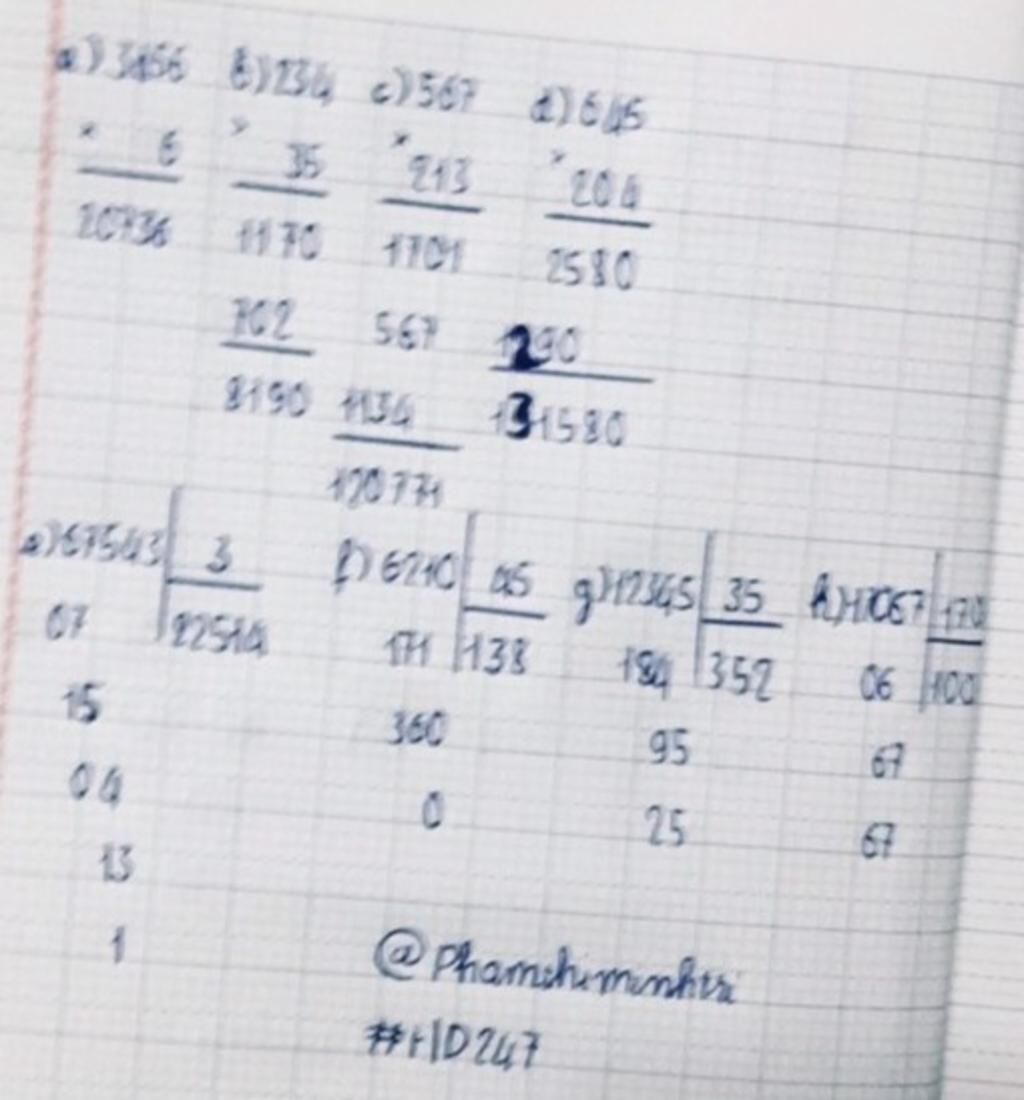 a) 3456 b) 234 c) 567 d) 645
× 6 × 35 × 213 × 204
20736 1170 1701 2580
702 567 1290
8190 1134 131580
120771
e) 67543 3 f) 6210 45 g) 12345 35 h) 17067 170
07 22514 171 138 184 352 06 100
15 360 95 67
04 0 25 67
13
1
#HD247